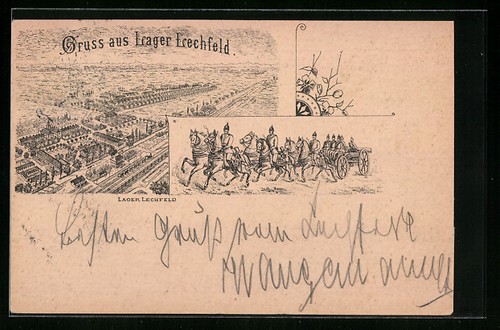 Gruss aus Lager Lechfeld.
LAGER LECHFELD
Besten Gruß vom Lechfeld